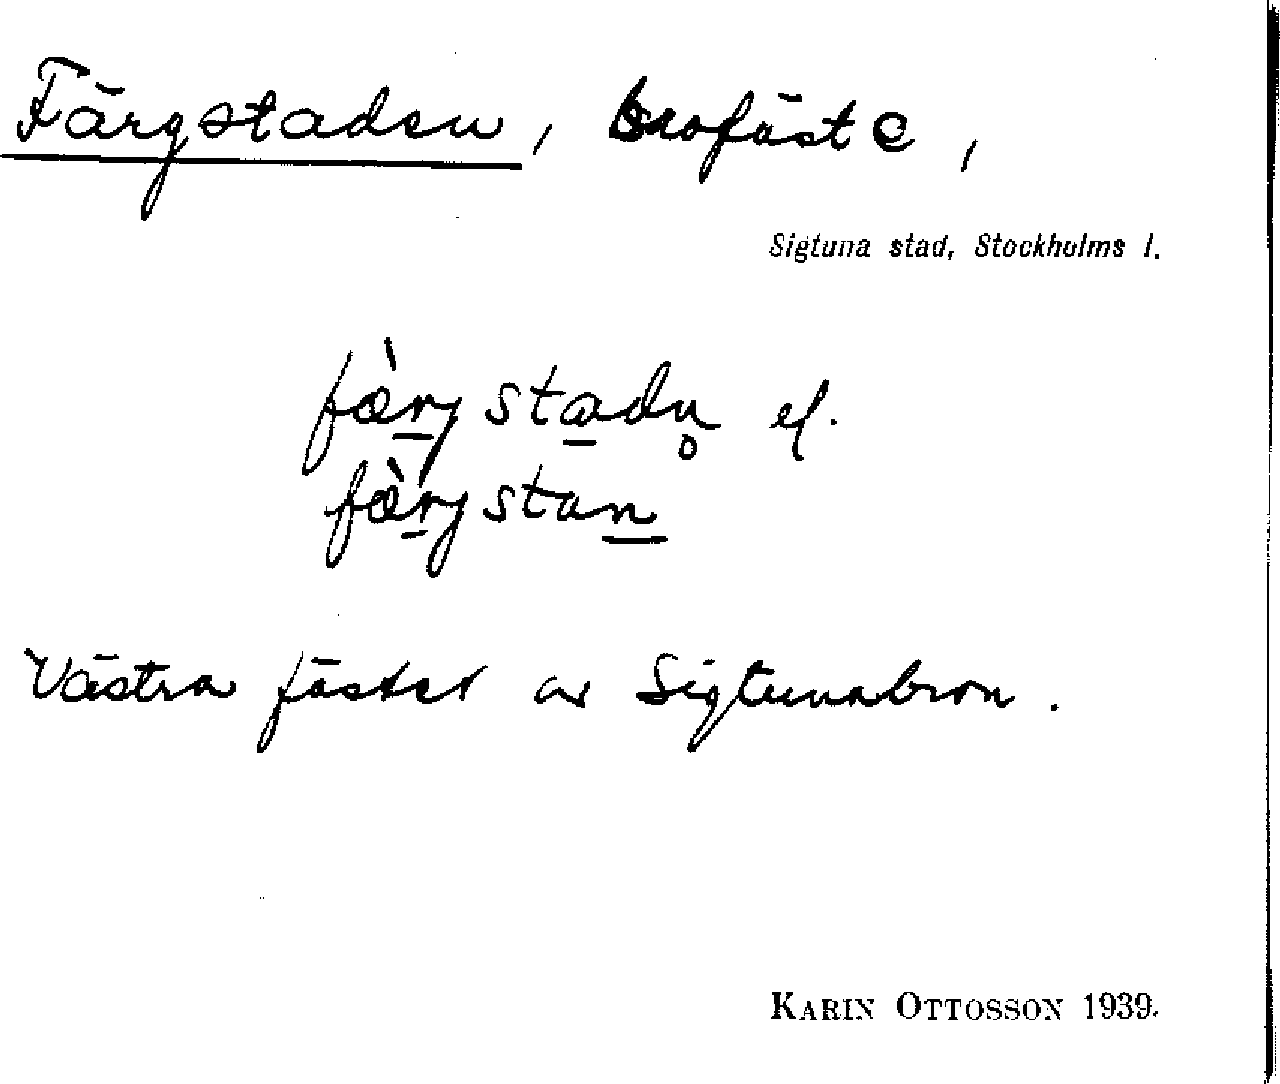 Färgstaden, brofäste,
Sigtuna stad, Stockholms l.
fæ̀rj stadn̥ el.
fæ̀rj stan
Västra fästet av Sigtunabron.
KARIN OTTOSSON 1939.